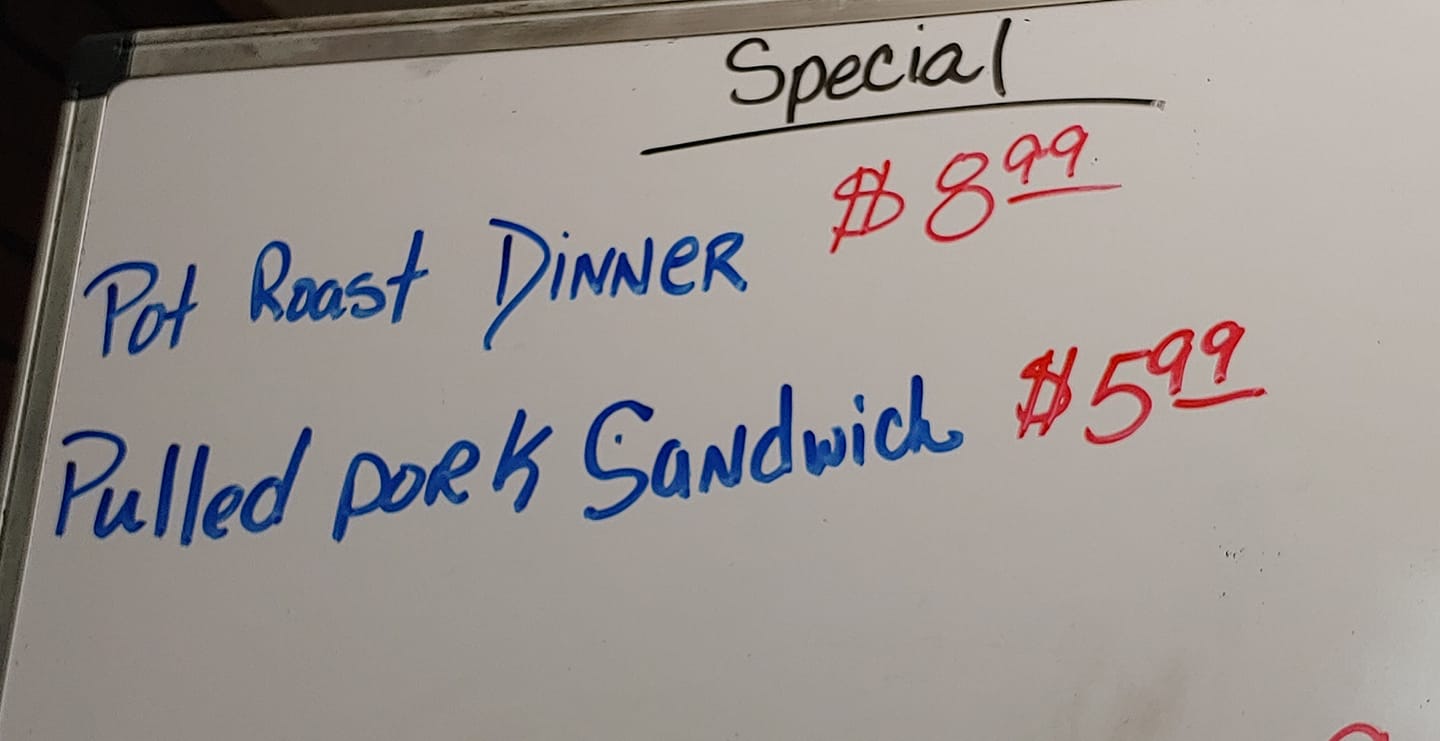 Special
Pot Roast DINNER $8.99
Pulled pork Sandwich $5.99